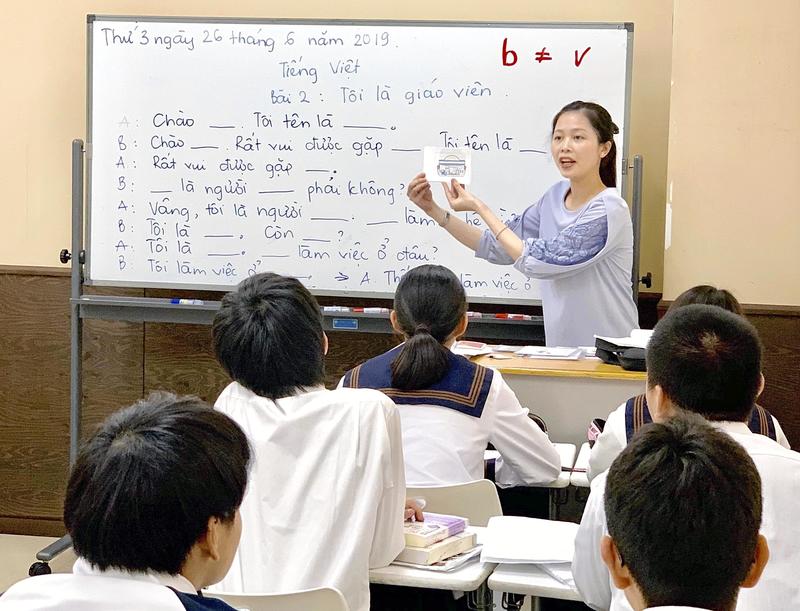 Thứ 3 ngày 26 tháng 6 năm 2019.
b ≠ v
Tiếng Việt
Bài 2 : Tôi là giáo viên.
A: Chào ___. Tôi tên là ___.
B: Chào ___. Rất vui được gặp ___ Tôi tên là ___
A: Rất vui được gặp ___.
B: ___ là người ___ phải không?
A: Vâng, tôi là người ___. ___ làm
B: Tôi là ___. Còn ___?
A: Tôi là ___. ___ làm việc ở đâu?
B: Tôi làm việc ở ___. ⇒ A. làm việc ở